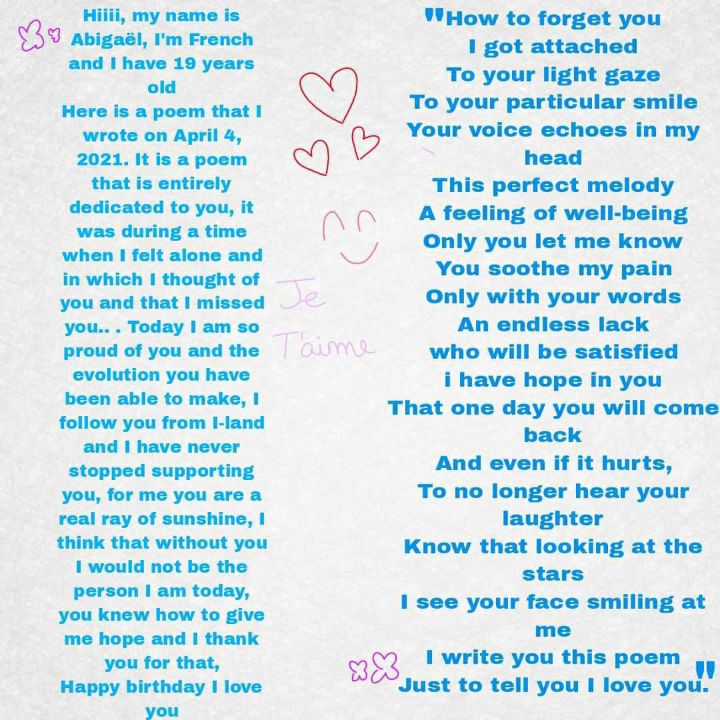 Hiiii, my name is
Abigaël, I'm French
and I have 19 years
old
Here is a poem that I
wrote on April 4,
2021. It is a poem
that is entirely
dedicated to you, it
was during a time
when I felt alone and
in which I thought of
you and that I missed
you.. . Today I am so
proud of you and the
evolution you have
been able to make, I
follow you from I-land
and I have never
stopped supporting
you, for me you are a
real ray of sunshine, I
think that without you
I would not be the
person I am today,
you knew how to give
me hope and I thank
you for that,
Happy birthday I love
you
Je
T'aime
"How to forget you
I got attached
To your light gaze
To your particular smile
Your voice echoes in my
head
This perfect melody
A feeling of well-being
Only you let me know
You soothe my pain
Only with your words
An endless lack
who will be satisfied
i have hope in you
That one day you will come
back
And even if it hurts,
To no longer hear your
laughter
Know that looking at the
stars
I see your face smiling at
me
I write you this poem
Just to tell you I love you."